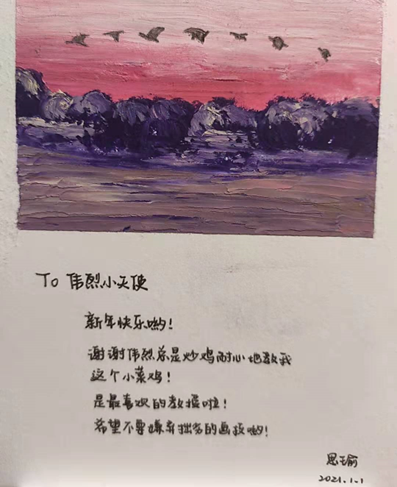 To 伟烈小天使
新年快乐哟！
谢谢伟烈总是炒鸡耐心地教我
这个小菜鸡！
是最喜欢的教授啦！
希望不要嫌弃拙劣的画技哟！
思瑜
2021.1.1